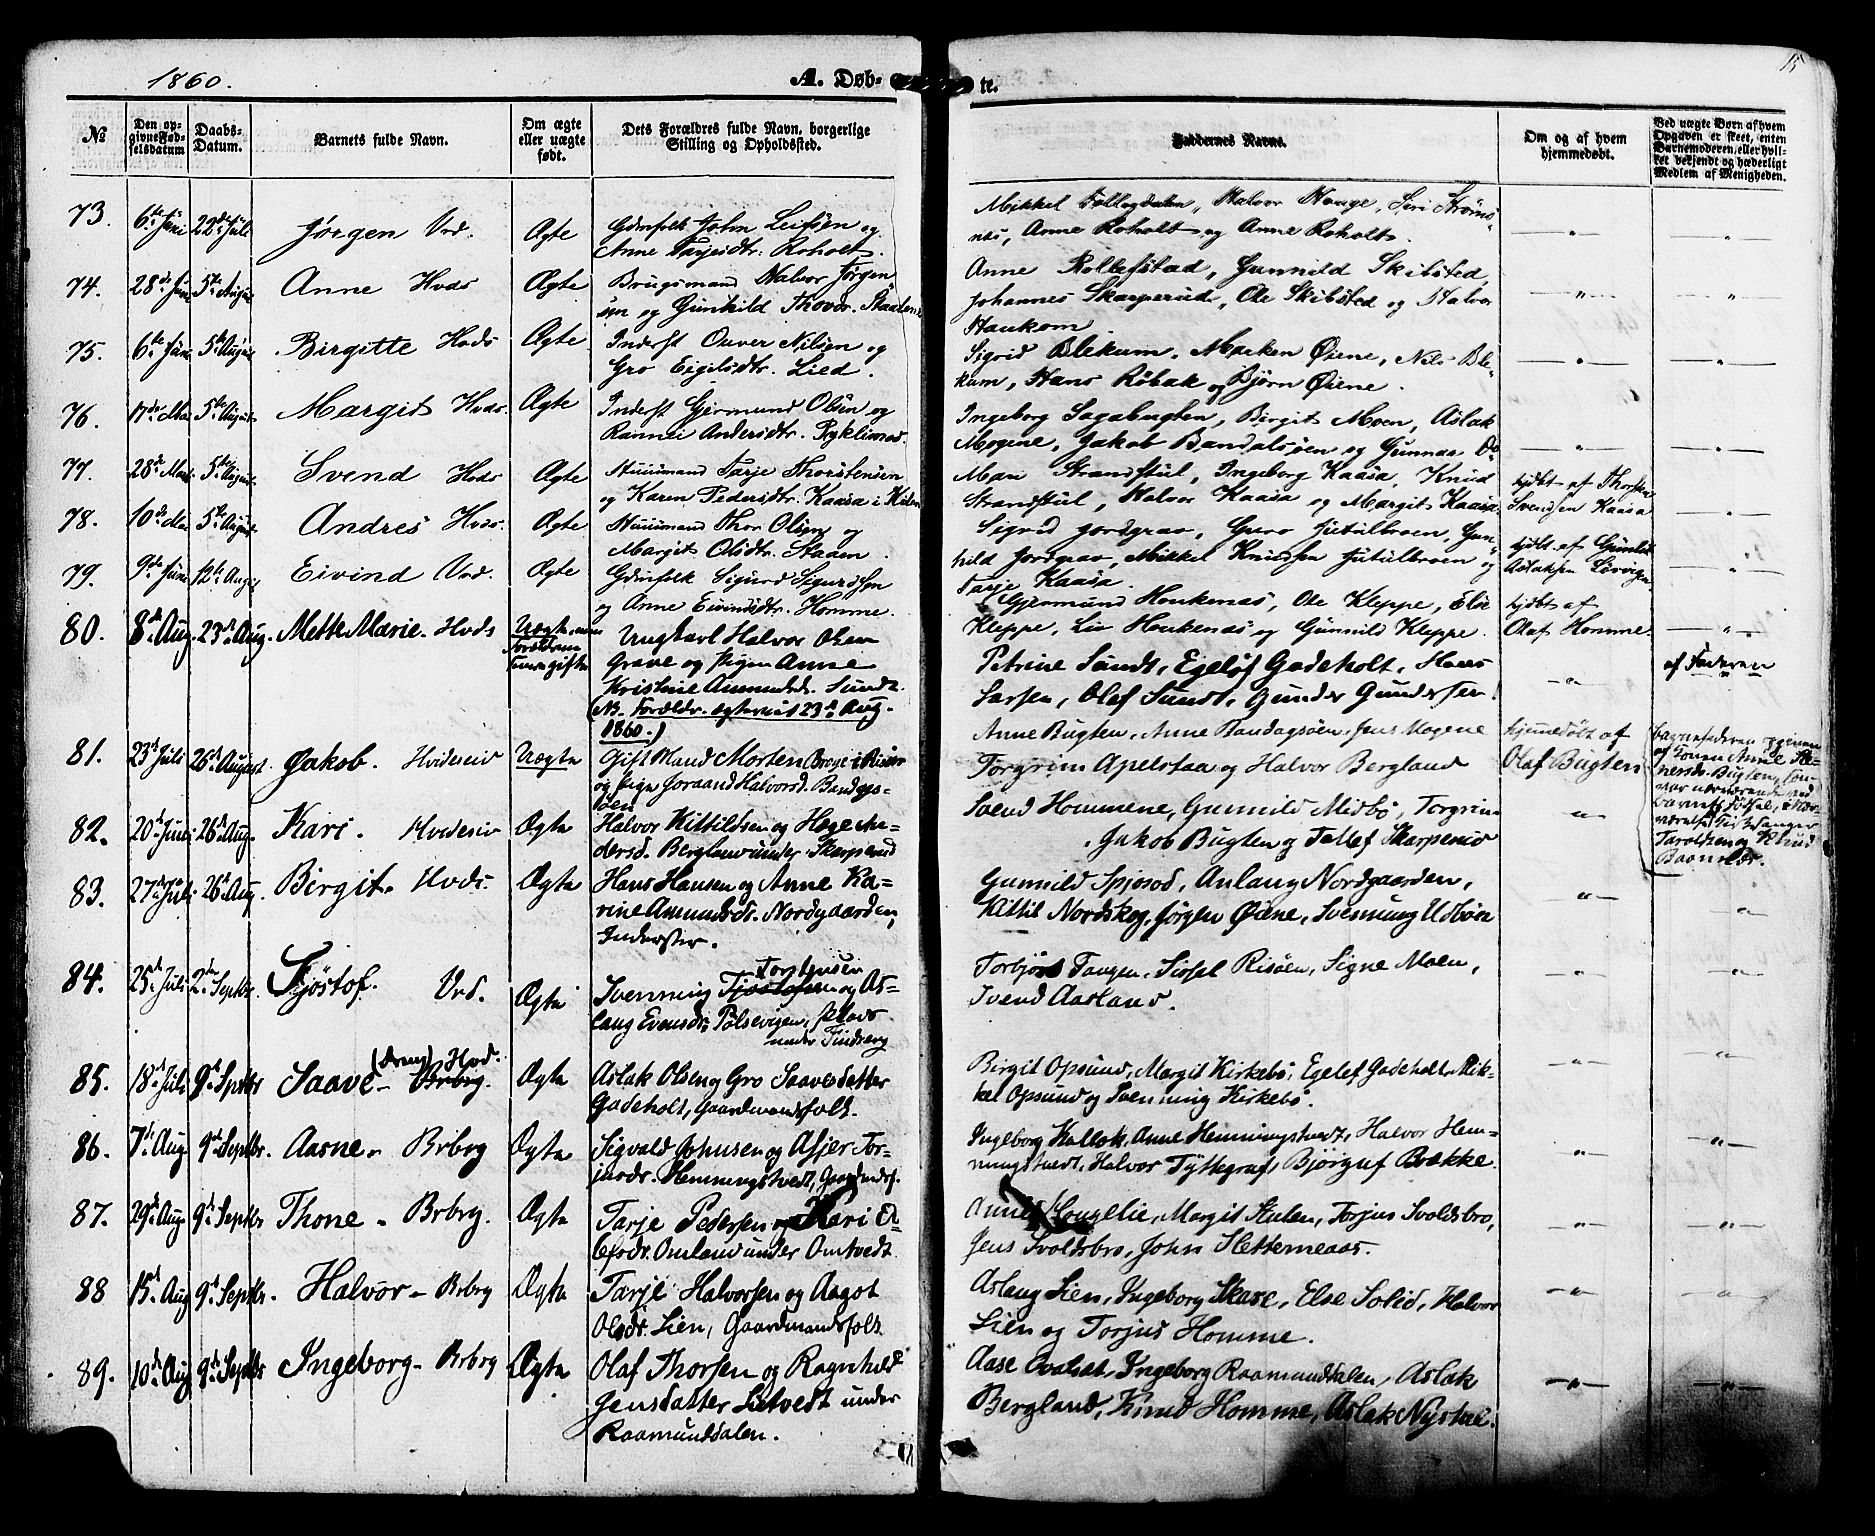 1860.
A. Døb-
te.
15
№
Den op-
givne Fød-
selsdatum
Daabs-
Datum.
Barnets fulde Navn.
Om ægte
eller uægte
født.
Dets Forældres fulde Navn, borgerlige
Stilling og Opholdssted.
Faddernes Navne.
Om og af hvem
hjemmedøbt.
Ved uægte Børn af hvem
Opgaven er skeet, enten
Barnemoderen, eller hvil-
ket bekjendt og hæderligt
Medlem af Menigheden.
73. 6te Juni 22de Juli Jørgen Vrd. Ægte Gdmfolk John Leifsen og
Anne Tarjeidtr. Roholt.
Mikkel Follogdalen, Halvor Hauge, Siri Strøms-
næs, Anne Roholt og Anne Roholt.
74. 28de Juni 5te August Anne Hvds Ægte Brugsmand Halvor Jørgen
sen og Gunhild Thovdr.
Anne Rollefstad, Gunnild Skibsted,
Johannes Skarperud, Ole Skibsted og Halvor
Haukom
75. 6te Juni 5te August Birgitte Hvds Ægte Inderst Ouver Nilsen og
Gro Eigilsdtr. Lied.
Sigrid Blekum, Marken Øiene, Nils Ble-
kum, Hans Røbak og Bjørn Øiene.
76. 17de Mai 5te August Margit Hvds. Ægte Inderst Gjermund Olsen og
Rannei Andersdtr.
Ingeborg Sagabugten, Birgit Moen, Aslak
Mogene, Jakob Bandalsøen og Gunnar
77. 28de 5te August Svend Hvds Ægte Huusmand Tarje Thorstensen
og Karen Pedersdtr. Kaasa i
Mari Strandstul, Ingeborg Kaasa, Knud
Strandstul, Halvor Kaasa og Margit Kaasa
hjdbt af Thorsten
Svendsen Kaasa
78. 10de Mai 5te August Andres Hvds. Ægte Huusmand Thor Olsen og
Margit Olsdtr. Staaen
Sigrid Jordgrav, Guro Jutulbroen, Gun-
hild Jordgrav, Mikkel Knudsen Jutulbroen og
Tarje Kaasa.
hjdbt af Gunleik
Aslaksen
79. 9de Juni 12te Aug Eivind Vrd. Ægte Gdmfolk Sigurd Sigurdsen
og Anne Eivindsdtr. Homme
Gjermund Haukenæs, Ole Kleppe, Else
Kleppe, Liv Haukenæs og Gunnild Kleppe.
hjdbt af
Olaf Homme.
80. 8de Aug. 23de Aug. Mette Marie. Hvds Uægte, men
Forældrene
gifte
Ungkarl Halvor Olsen
Grave og Pigen Anne
Kristine Amundsd. Sundt.
(NB. Forældr. ægteviet 23de Aug.
1860.)
Petrine Sundt, Egeløf Gadeholt, Hans
Larsen, Olaf Sundt, Gunder Gundersen
af Faderen
81. 23de Juli 26de August Jakob. Hvideseid Uægte Gift Mand Morten Brege i Risør
og Pige Joraand Halvorsd. Bandags-
søen
Anne Bugten, Anne Bandagsøen, Jens Mogene
Torgrim Apelstaa og Halvor Bergland
hjemmedøbt af
Olaf Bugten
Barnefaderen opgiven
af Konen Anne
Bugten, som
var nærværende ved
Barnets Fødsel, i Nær-
værelse af
Taroldsen og Knud
82. 20de Juni 26de Aug. Kari. Hvideseid Ægte Halvor Kittilsen og Hege An-
dersd. Bergland under Skarperud
Svend Hommene, Gunnild Midbø, Torgrim
Jakob Bugten og Tallef Skarperud
83. 27de Juli 26de Aug. Birgit. Hvds. Ægte Hans Hansen og Anne Ka-
rine Amundsdr. Nordgaarden,
Inderster.
Gunnild Spjosod, Anlaug Nordgaarden,
Kittil Nordskog, Jørgen Øiene, Svenning Udbøen
84. 25de Juli 2de Septbr. Tjøstof. Vrd. Ægte Torstensen
Svenning Tjøstofsen og As-
laug Evensdr. Pølsevigen, Plads
under Tindberg
Torbjør Tangen, Sissel Risøen, Signe Moen,
Svend Aasland.
85. 18de Juli 9de Septbr Saave (dreng) Hvd. Brbrg. Ægte Aslak Olsen og Gro Saavesdatter
Gadeholt, Gaardmandsfolk.
Birgit Opsund, Margit Kirkebø, Egelef Gadeholt, Mik-
kel Opsund og Svenning Kirkebø.
86. 7de Aug 9de Septbr. Aasne Brbrg Ægte Sigvald Johnsen og Asjer Tor-
jusdr. Hemmingstvedt, Gaardmdsf.
Ingeborg Kallok, Anne Hemmingstvedt, Halvor Hem-
mingstvedt, Halvor Tyttegraf, Bjørguf Brække
87. 29de Aug 9de Septbr Thone Brbrg. Ægte Tarje Pedersen og Kari O-
lefsdr. Omland under Omtvedt
Anne Haugelie, Margit Stulen, Torjus Svoldsbro,
Jens Svoldsbro, John Slettemeaas.
88 15de Aug 9de Septbr. Halvor Brbrg Ægte Tarje Halvorsen og Aagot
Olsdr. Lien, Gaardmandsfolk
Aslaug Lien, Ingeborg Skare, Else Solid, Halvor
Lien og Torjus Homme.
89. 10de Aug 9de Septbr Ingeborg Brbrg Ægte Olaf Thorsen og Ragnhild
Jensdatter Lietvedt under
Raamunddalen.
Aase Ovalsat, Ingeborg Raamunddalen, Aslak
Bergland, Knud Homme, Aslak Nystul.